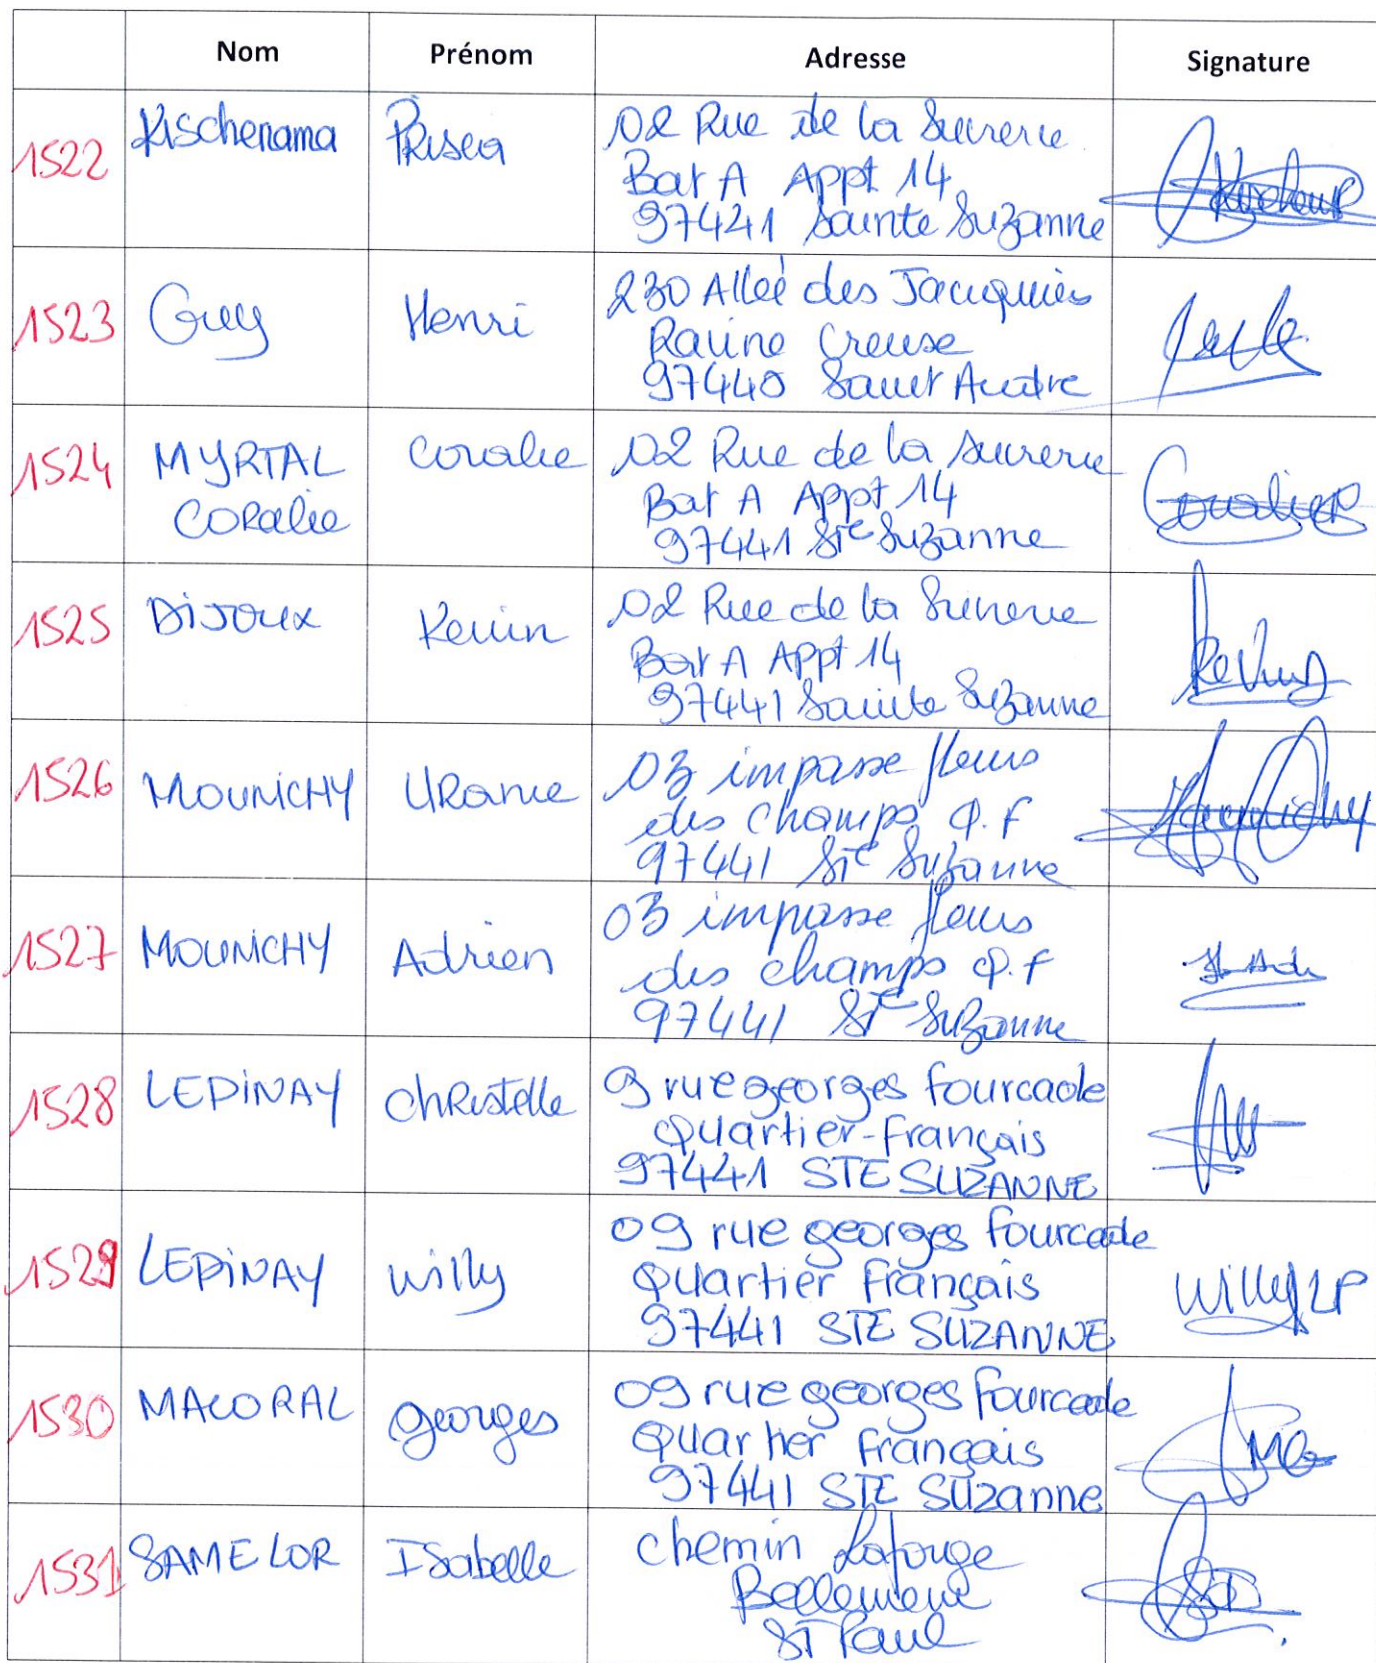 Nom Prénom Adresse Signature
1522 Kischenama Prisca 02 Rue de la Sucrerie
Bat A Appt 14
97421 Sainte Suzanne
1523 Guy Henri 230 Allée des Jacquiers
Ravine Creuse
97440 Saint Andre
1524 MYRTAL Coralie 02 Rue de la Sucrerie
CORalie Bat A Appt 14
97441 Ste Suzanne
1525 DiJoux Kevin 02 Rue de la Sucrerie
Bat A Appt 14
97441 Sainte Suzanne
1526 MOUNICHY URanie 03 impasse fleurs
des champs Q.F
97441 Ste Suzanne
1527 MOUNICHY Adrien 03 impasse fleurs
des champs Q.F
97441 Ste Suzanne
1528 LEPiNAY chRistelle 9 rue georges fourcade
Quartier-français
97441 STE SUZANNE
1529 LEPiNAY willy 09 rue georges fourcade
Quartier français Willy LP
97441 STE SUZANNE
1530 MACORAL georges 09 rue georges fourcade
Quartier français
97441 STE Suzanne
1531 SAMELOR ISabelle chemin Laforge
Bellemene
ST Paul